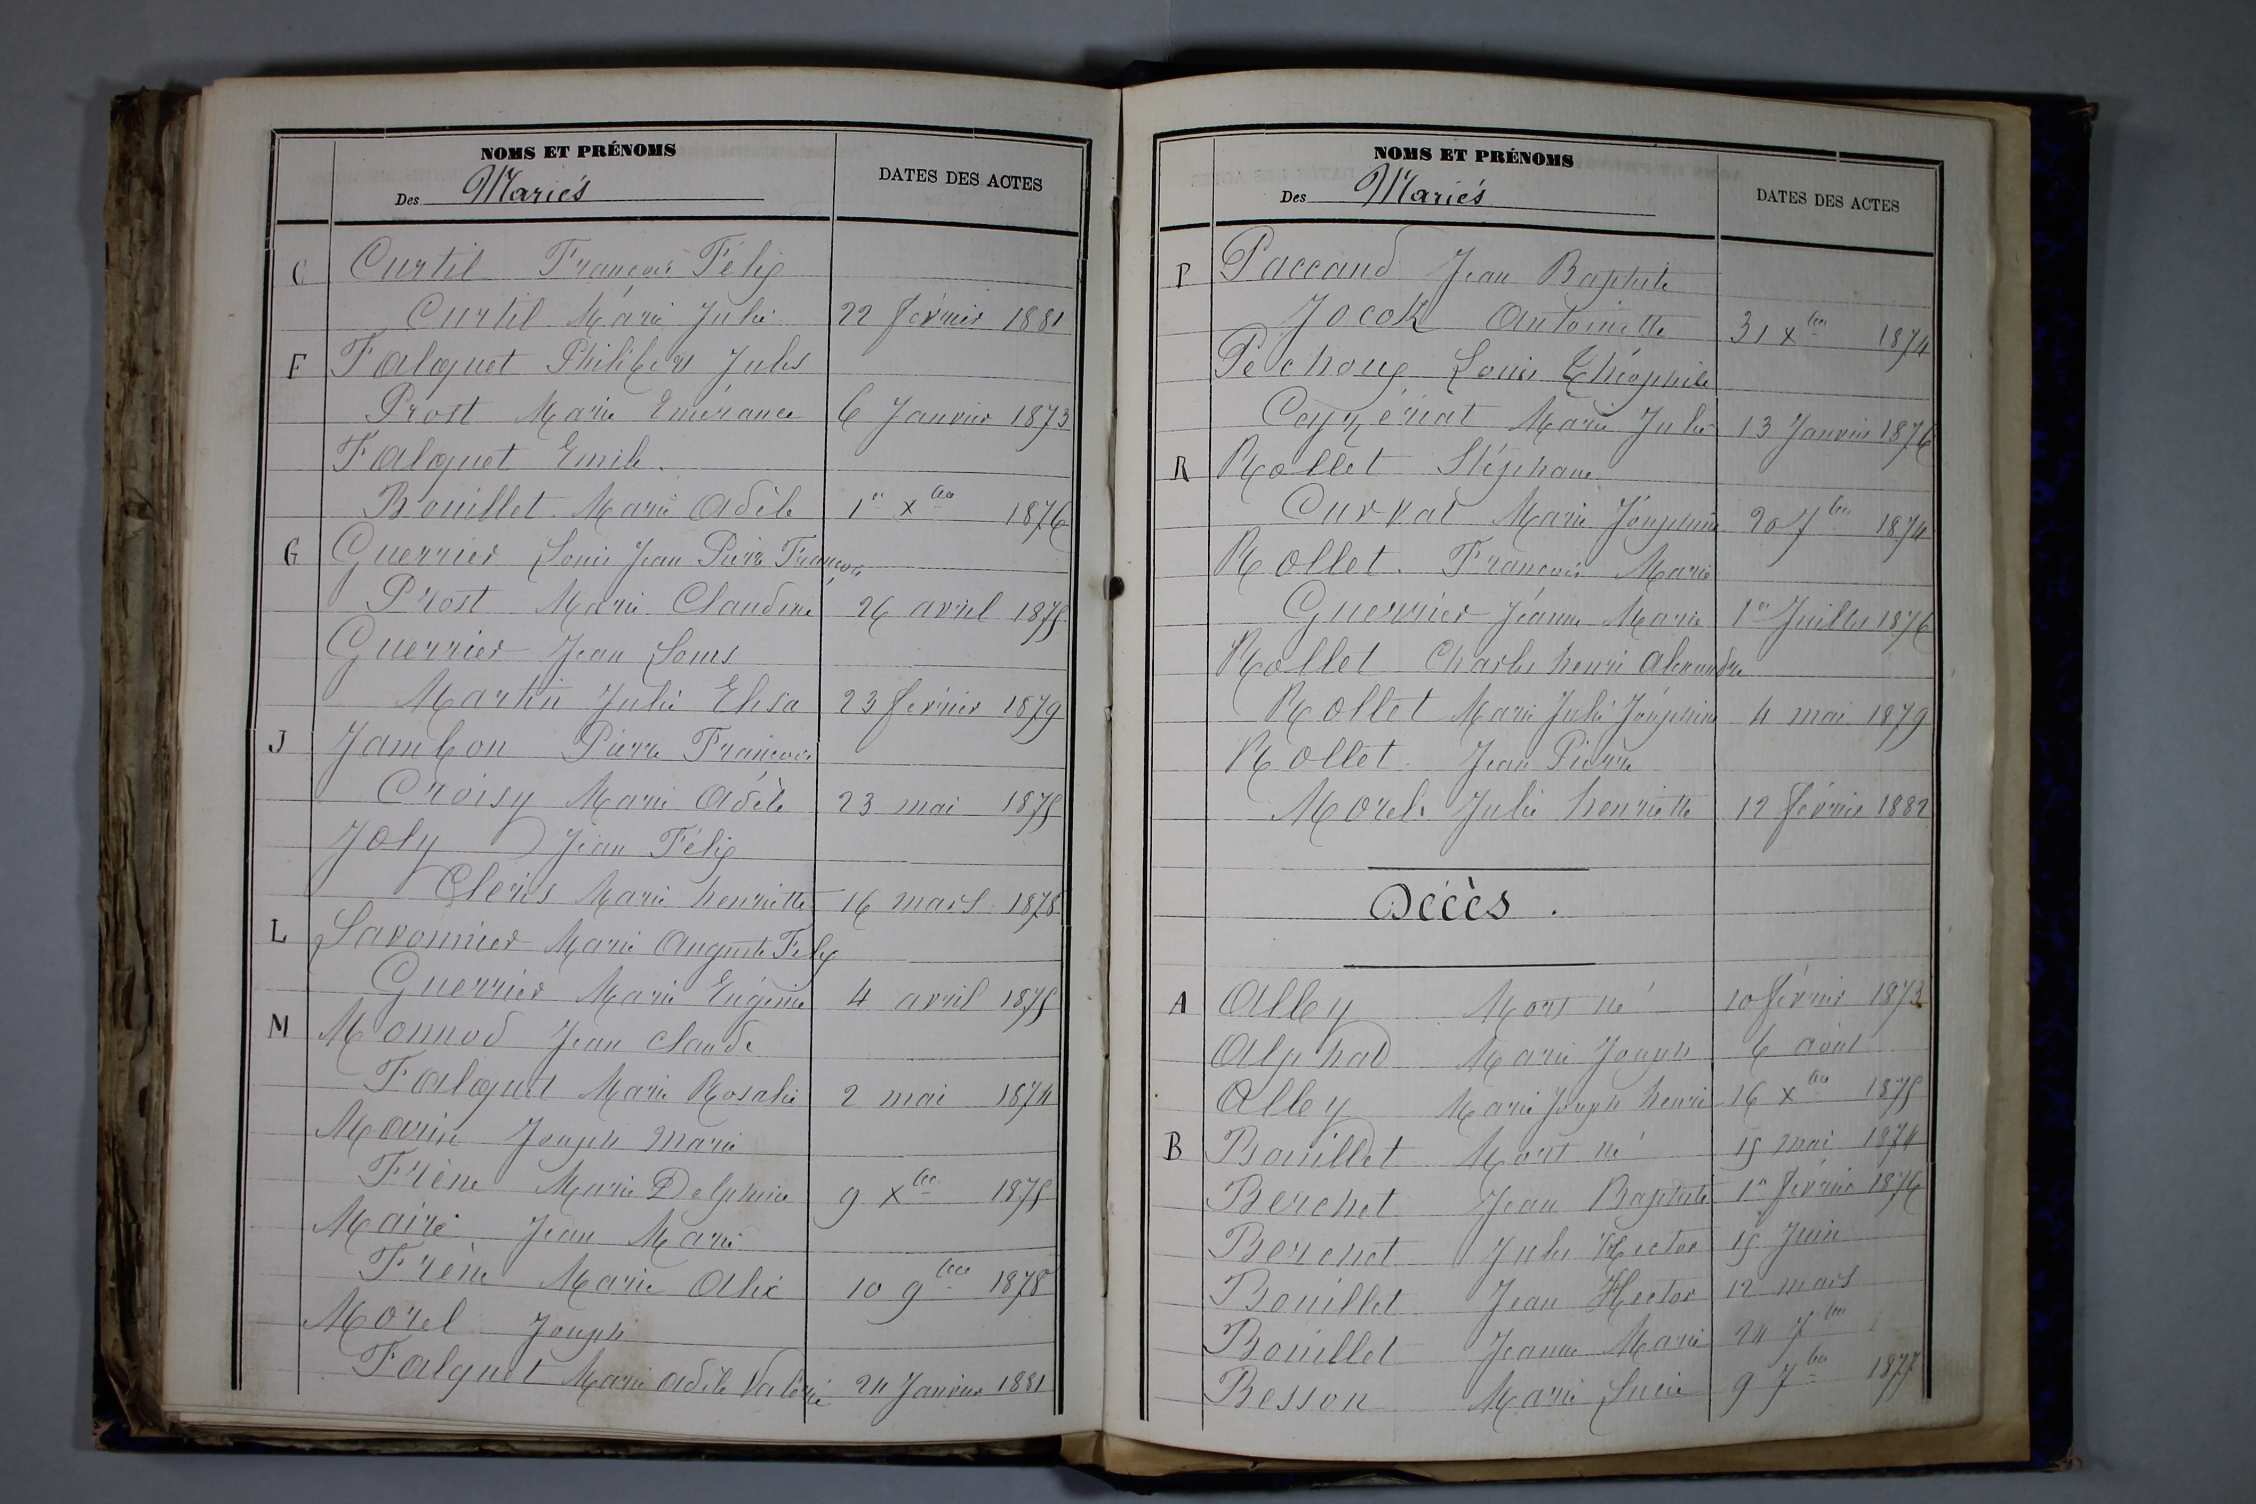 NOMS ET PRÉNOMS
Des Mariés
DATES DES ACTES
C Curtil François Félix
Curtil Marie Julie 22 février 1881
F Falquet Philibert Jules
Prost Marie Emérance 6 Janvier 1873
Falquet Emile.
Bouillet Marie Adèle 1er xbre 1876
G Guerrier Louis Jean Pierre François
Prost Marie Claudine 26 avril 1875
Guerrier Jean Louis
Martin Julie Elisa 23 février 1879
J Jambon Pierre François
Croisy Marie Adèle 23 mai 1875
Joly Jean Félix
Clerc Marie henriette 16 mars 1878
L Lavonnier Marie Auguste Felix
Guerrier Marie Eugénie 4 avril 1875
M Monnod Jean Claude
Falquet Marie Rosalie 2 mai 1874
Marin Joseph Marie
Frène Marie Delphine 9 xbre 1875
Maire Jean Marie
Frène Marie Alix 10 9bre 1878
Morel Joseph
Falquet Marie Adèle Valérie 24 Janvier 1881
NOMS ET PRÉNOMS
Des Mariés
DATES DES ACTES
P Paccaud Jean Baptiste
Antoinette 31 xbre 1874
Péchoux Louis Théophile
Ceyzériat Marie Julie 13 Janvier 1876
R Rollet Stéphane
Curvat Marie Joséphine 20 7bre 1874
Rollet. François Marie
Guerrier Jeanne Marie 1er Juillet 1876
Rollet Charles henri Alexandre
Rollet Marie Julie Joséphine 4 mai 1879
Rollet Jean Pierre
Morel. Julie henriette 12 février 1882
Décès.
A Alley Mort né 10 février 1873
Alphad Marie Joseph 6 août
Alley Marie Joseph henri 16 xbre 1875
B Bouillet Mort né 15 mai 1874
Berchet Jean Baptiste 1er février 1876
Berchet Jules Hector 15 Juin
Bouillet Jean Hector 12 mars
Bouillet Jeanne Marie 24 7bre
Besson Marie Lucie 9 7bre 1877